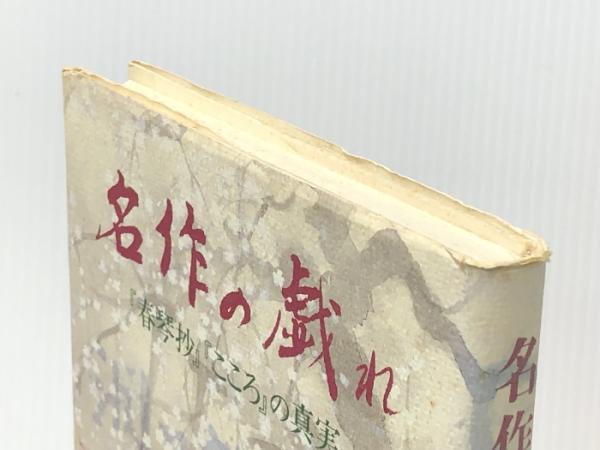 名作の戯れ
『春琴抄』『こころ』の真実
名作